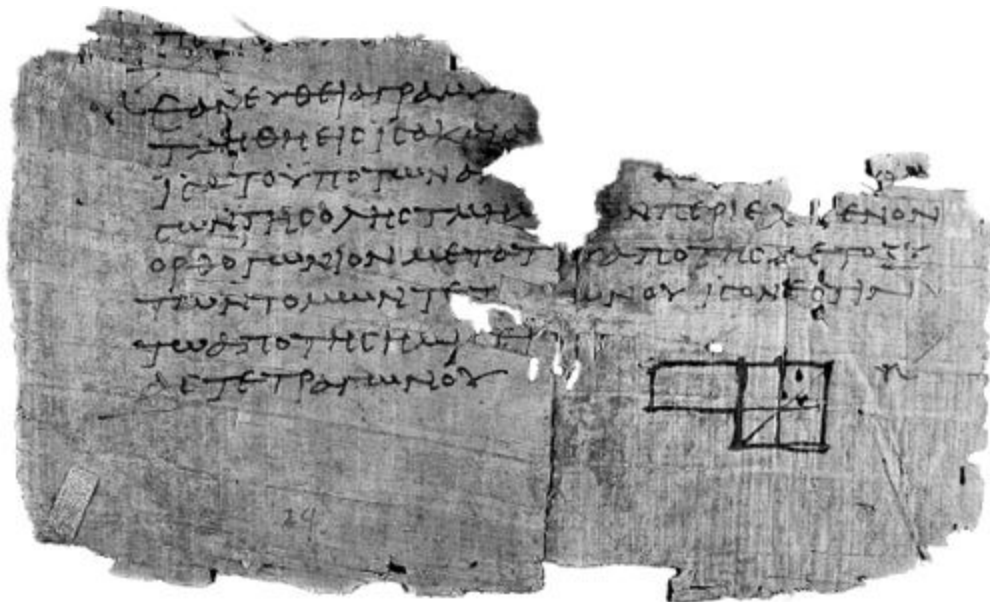 ΕΑΝ ΕΥΘΕΙΑ ΓΡΑΜΜ
ΤΜΗΘΗ ΕΙϹ ΙϹΑ ΚΑΙ
ΙϹΑ ΤΟ ΥΠΟ ΤΩΝ Α
ϹΩΝ ΤΗϹ ΟΛΗϹ ΤΜΗΜ ΩΝ ΠΕΡΙΕΧ ΜΕΝΟΝ
ΟΡΘΟΓΩΝΙΟΝ ΜΕΤΑ Τ Υ ΑΠΟ ΤΗϹ ΜΕΤΟΞΥ
ΤΩΝ ΤΟΜΩΝ ΤΕΤ ΩΝΟΥ ΙϹΟΝ ΕϹΤΙΝ
ΤΩ ΑΠΟ ΤΗϹ ΗΜΙϹΕΙ
ΑϹ ΤΕΤΡΑΓΩΝΟΥ
24